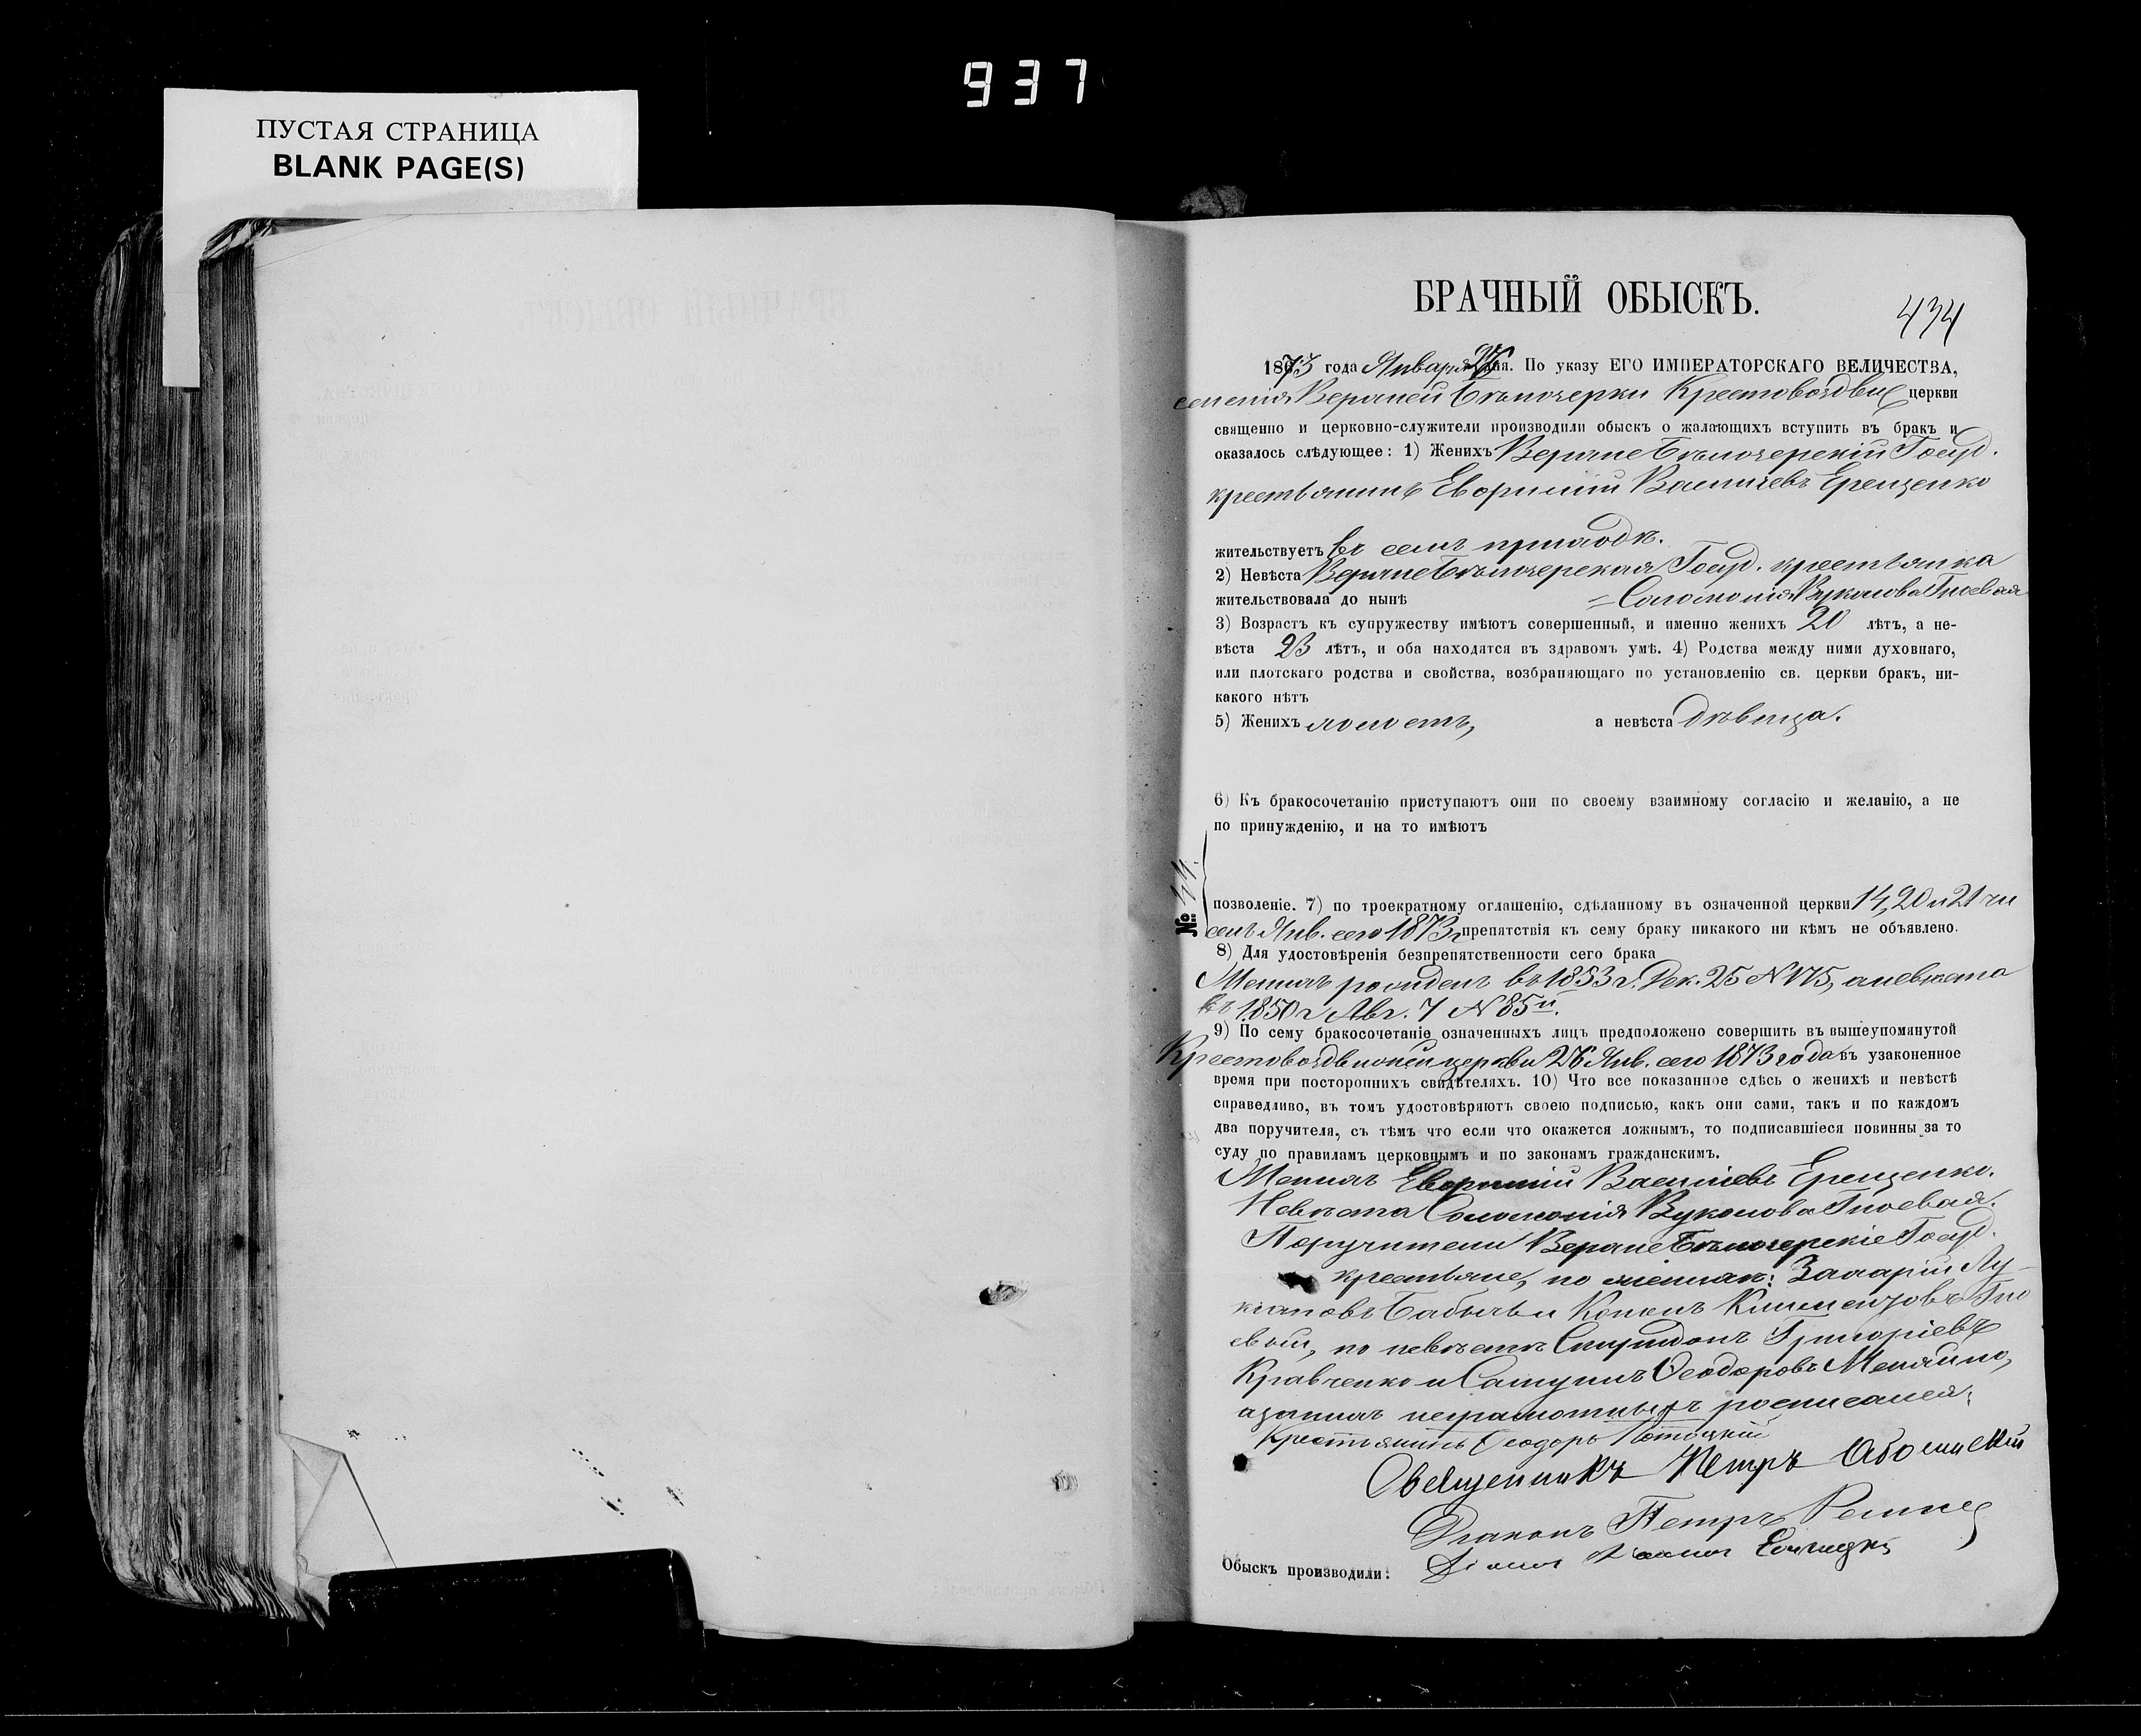 937
ПУСТАЯ СТРАНИЦА
BLANK PAGE(S)
БРАЧНЫЙ ОБЫСКЪ.
434
1873 года Января 26 дня. По указу ЕГО ИМПЕРАТОРСКАГО ВЕЛИЧЕСТВА,
селенія Верхней Бѣлозерки Крестовоздвиж церкви
священно и церковно-служители производили обыскъ о жалающихъ вступить въ бракъ и
оказалось слѣдующее: 1) Женихъ Верхне Бѣлозерскій Госуд.
крестьянинъ Евфимій Васильевъ Ерещенко
жительствуетъ въ семъ приходѣ.
2) Невѣста Верхне Бѣлозерская Госуд. крестьянка
жительствовала до нынѣ = Соломонія Вуколова Гноевая
3) Возрастъ къ супружеству имѣютъ совершенный, и именно женихъ 20 лѣтъ, а не-
вѣста 23 лѣтъ, и оба находятся въ здравомъ умѣ. 4) Родства между ними духовнаго,
или плотскаго родства и свойства, возбраняющаго по установленію св. церкви бракъ, ни-
какого нѣтъ
5) Женихъ холостъ, а невѣста дѣвица.
6) Къ бракосочетанію приступаютъ они по своему взаимному согласію и желанію, а не
по принужденію, и на то имѣютъ
№:
позволеніе. 7) по троекратному оглашенію, сдѣланному въ означенной церкви 14, 20 и 21 чи
селъ Янв. сего 1873 г препятствія къ сему браку никакого ни кѣмъ не объявлено.
8) Для удостовѣренія безпрепятственности сего брака
Женихъ рожденъ въ 1853 г. Дек. 25 N 175, а невѣста
въ 1850 г Авг. 7 N 85й.
9) По сему бракосочетаніе означенныхъ лицъ предположено совершить въ вышеупомянутой
Крестовоздвижской церкви 26 Янв. сего 1873 года въ узаконенное
время при постороннихъ свидѣтеляхъ. 10) Что все показанное сдѣсь о женихѣ и невѣстѣ
справедливо, въ томъ удостовѣряютъ своею подписью, какъ они сами, такъ и по каждомъ
два поручителя, съ тѣмъ что если что окажется ложнымъ, то подписавшіеся повинны за то
суду по правиламъ церковнымъ и по законамъ гражданскимъ.
Женихъ Евфимій Васильевъ Ерещенко.
Невѣста Соломонія Вуколова Гноевая.
Поручители Верхне Бѣлозерскіе Госуд.
крестьяне, по женихѣ: Захарій Лу-
кіановъ Бабычъ и Климентовъ Гно
евый, по невѣстѣ Спиридонъ Григорьевъ
Кравченко и Ѳеодоровъ
неграмотныхъ росписался:
Крестьянинъ Ѳеодоръ
Священникъ Петръ
Діаконъ Петръ
Обыскъ производили: